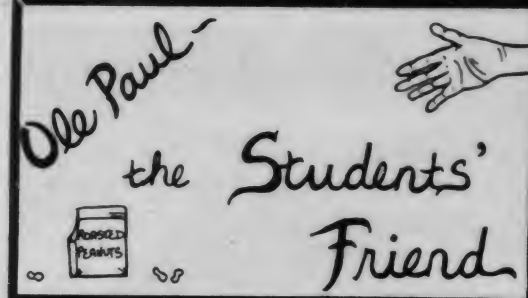 Ole Paul-
the Students'
Friend
ROASTED
PEANUTS